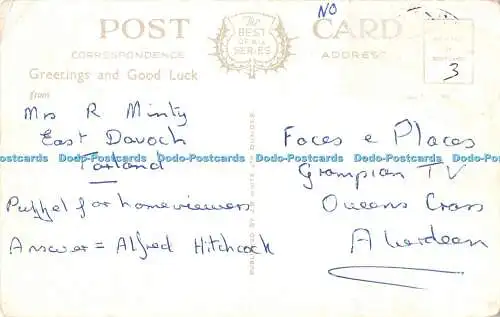 NO
POST CARD
The BEST OF ALL SERIES
CORRESPONDENCE
ADDRESS
Greetings and Good Luck
from
3
Mrs R Minty
East Davoch
Tarland
Puzzel for homeviewers
Answer = Alfred Hitchcock
Faces e Places
Grampian TV
Queens Cross
Aberdeen
Dodo-Postcards Dodo-Postcards Dodo-Postcards Dodo-Postcards Dodo-Postcards